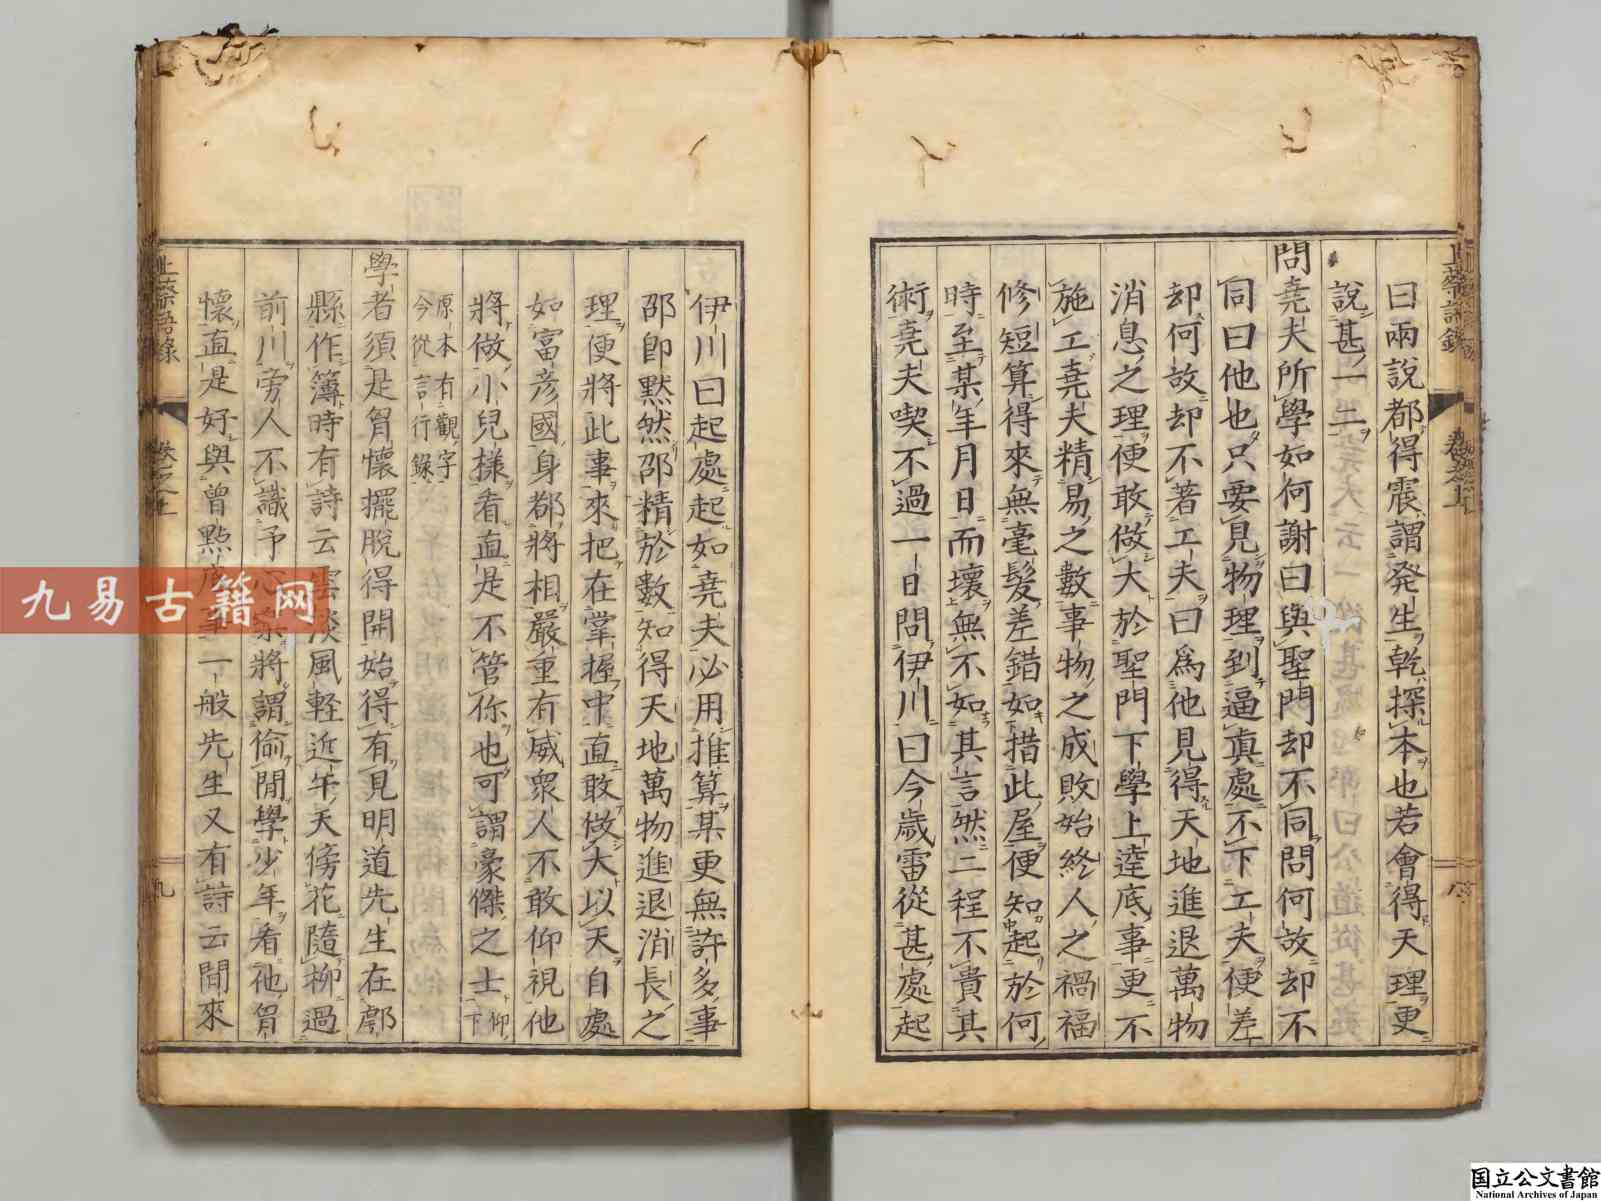 曰兩說都得震謂発生乾探本也若會得天理更
說甚一二
問堯夫所學如何謝曰與聖門却不同問何故却不
同曰他也只要見物理到逼真處不下工夫便差
却何故却不著工夫曰為他見得天地進退萬物
消息之理便敢做大於聖門下學上逹底事更不
施工堯夫精易之數事物之成敗始終人之禍福
修短算得來無毫髮差錯如措此屋便知起於何
時至某年月日而壞無不如其言然二程不貴其
術堯夫喫不過一日問伊川曰今歲雷從甚處起
伊川曰起處起如堯夫必用推算某更無許多事
邵即黙然邵精於數知得天地萬物進退消長之
理便將此事來把在掌握中直敢做大以天自處
如富彦國身都將相嚴重有威衆人不敢仰視他
將做小兒様看直是不管你也可謂豪傑之士 仰下
原本有觀字
今從言行錄
學者須是胷懷擺脫得開始得有見明道先生在鄠
縣作簿時有詩云雲淡風軽近午天傍花隨柳過
前川旁人不識予心樂將謂偷閒學少年看他胷
懷直是好與曾㸃底事一般先生又有詩云閒來
上蔡語錄
卷之上
八
上蔡語錄
卷之上
九
九易古籍网
国立公文書館
National Archives of Japan